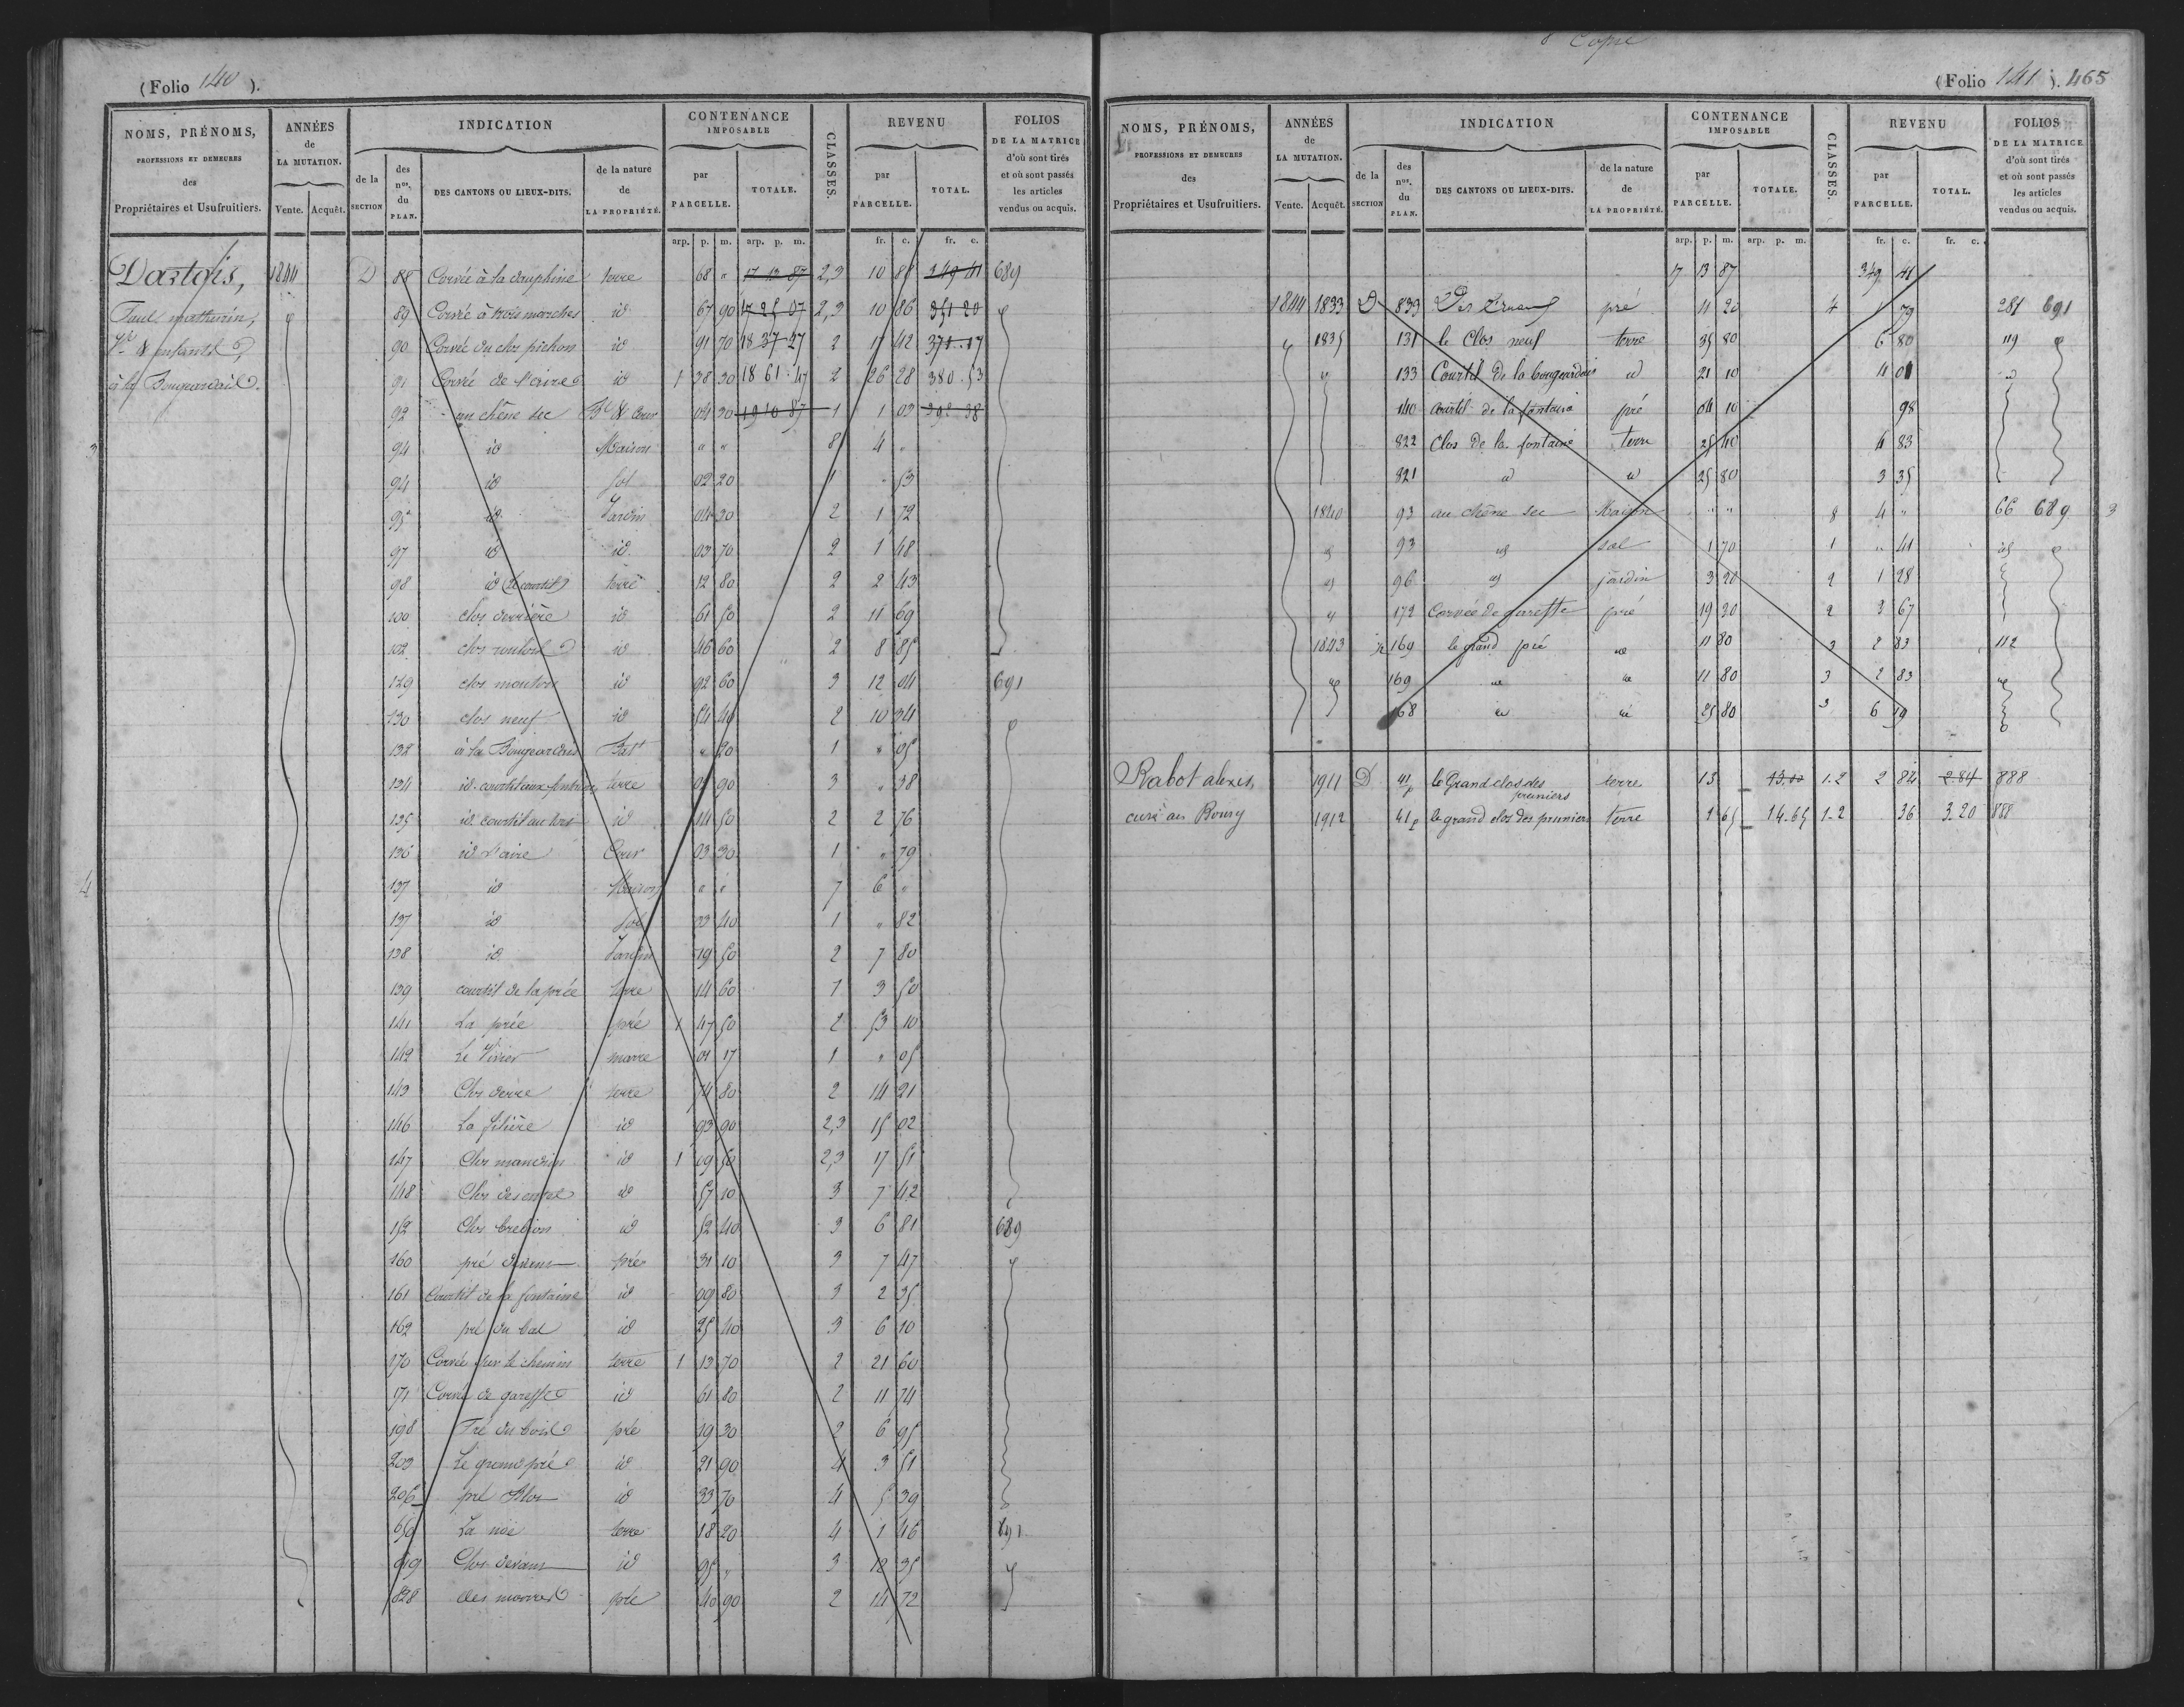 (Folio 140 ).
NOMS, PRÉNOMS, PROFESSIONS ET DEMEURES des Propriétaires et Usufruitiers.
ANNÉES de LA MUTATION. Vente. Acquêt.
INDICATION de la SECTION des nos. du PLAN. DES CANTONS OU LIEUX-DITS. de la nature de LA PROPRIÉTÉ.
CONTENANCE IMPOSABLE par PARCELLE. TOTALE.
CLASSES.
REVENU par PARCELLE. TOTAL.
FOLIOS DE LA MATRICE d'où sont tirés et où sont passés les articles vendus ou acquis.
arp. p. m. arp. p. m. fr. c. fr. c.
Dastais, 1844 D 88 Corvée à la dauphine terre 68 " 17 13 87 2,3 10 88 349 41 689
Paul mathurin, 89 Corvée à trois marches id 67 90 17 25 07 2,3 10 86 351 20
Vve & enfants 90 Corvée du clos pichon id 91 70 18 37 27 2 17 42 371.17
à la Bougeardais. 91 Corvée de l'aire id 1 38 30 18 61 47 2 26 28 380.53
92 au chêne sec Bt & Cour 04 30 19 10 87 1 1 03 392 38
94 id Maison " " 8 4 "
94 id sol 02 20 1 " 53
95 id Jardin 04 30 2 1 72
97 id id 03 70 2 1 48
98 id (le courtil) terre 12 80 2 2 43
100 clos derrière id 61 50 2 11 69
102 clos id 46 60 2 8 85
129 clos mouton id 92 60 3 12 04 691
130 clos neuf id 54 40 2 10 34
132 à la Bougeardais Bat " 20 1 " 05
134 id. courtil aux terre 02 90 3 " 38
135 id. courtil au id 14 50 2 2 76
136 id l'aire Cour 03 30 1 " 79
137 id Maison " " 7 6 "
137 id sol 03 40 1 " 82
138 id Jardin 19 50 2 7 80
139 courtil de la prée terre 14 60 1 3 50
141 La prée pré 1 47 50 2 53 10
142 Le Vivier marre 01 17 1 " 05
143 Clos terre 74 80 2 14 21
146 La filière id 93 90 2,3 15 02
147 Clos id 1 09 50 2,3 17 51
148 Clos id 57 10 3 7 42
152 Clos brebion id 52 40 3 6 81 689
160 pré pré 31 10 3 7 47
161 Courtil de la fontaine id 09 80 3 2 35
162 pré du bas id 25 40 3 6 10
170 Corvée sur le chemin terre 1 13 70 2 21 60
171 Corvée de gareffe id 61 80 2 11 74
198 Pré du bois pré 19 30 2 6 95
203 Le grand pré id 21 90 4 3 51
206 pré id 33 70 4 5 39
659 La noë terre 18 20 4 1 46 691
Clos devant id 95 " 3 12 35
828 des marres pré 40 90 2 14 72
Copie
(Folio 141 ). 465
NOMS, PRÉNOMS, PROFESSIONS ET DEMEURES des Propriétaires et Usufruitiers.
ANNÉES de LA MUTATION. Vente. Acquêt.
INDICATION de la SECTION des nos. du PLAN. DES CANTONS OU LIEUX-DITS. de la nature de LA PROPRIÉTÉ.
CONTENANCE IMPOSABLE par PARCELLE. TOTALE.
CLASSES.
REVENU par PARCELLE. TOTAL.
FOLIOS DE LA MATRICE d'où sont tirés et où sont passés les articles vendus ou acquis.
arp. p. m. arp. p. m. fr. c. fr. c.
17 13 87 349 41
1844 1833 D 833 pré 11 20 4 1 79 281 691
1835 131 le Clos neuf terre 35 80 6 80 119
133 Courtil de la bougeardais id 21 10 4 01
140 courtil de la fontaine pré 04 10 98
822 Clos de la fontaine terre 25 40 4 83
821 id id 25 80 3 35
1840 93 au chêne sec Maison " " 8 4 " 66 689
93 id sol 1 70 1 " 41 id
96 id jardin 3 20 2 1 28
172 Corvée de gareffe pré 19 30 2 3 67
1843 169 le grand pré id 11 80 3 2 83 112
169 id id 11 80 3 2 83
168 id id 25 80 3 6 19
Rabot alexis, 1911 D 41p le Grand clos des pruniers terre 13 13.00 1.2 2 84 2.84 888
curé au Bourg 1912 41p le grand clos des pruniers terre 1 65 14.65 1-2 36 3.20 888